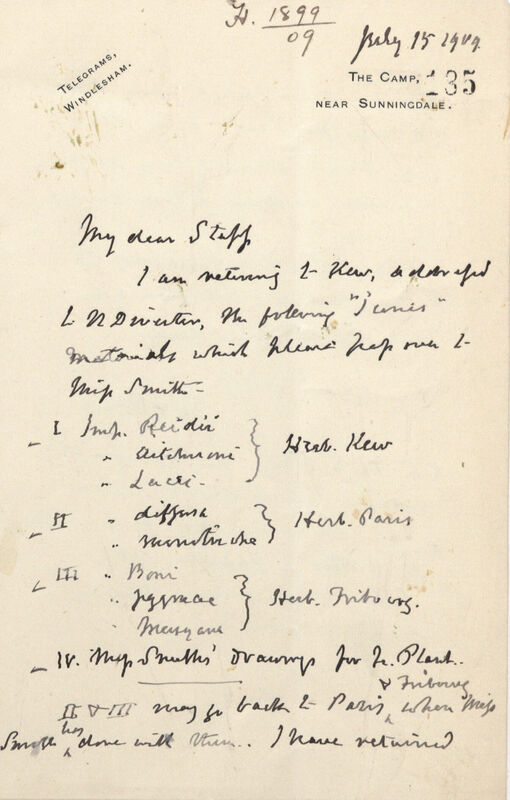 H. 1899
09
July 15 1909
TELEGRAMS,
WINDLESHAM.
THE CAMP,
135
NEAR SUNNINGDALE.
My dear Stapf
I am returing to Kew, addressed
to the Director, the following
materials which please pass over to
Miss Smith -
I Imp. Reidii
" Aitchisoni
" Lacei.
} Herb. Kew
II " diffusa
" monotricha
} Herb. Paris
III " Boni
" pygmaea
" Masgana
} Herb. Fribourg.
IV. Miss Smith's drawings for Ic. Plant.
II & III may go back to Paris & Fribourg when Miss
Smith has done with them. I have retained